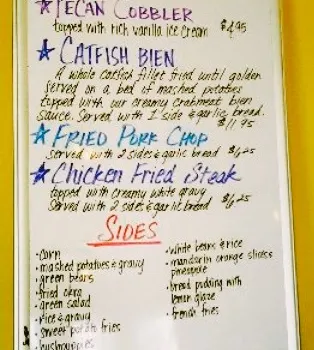 PECAN COBBLER
topped with rich vanilla ice cream $4.95
CATFISH BIEN
A whole catfish fillet fried until golden
served on a bed of mashed potatoes
topped with our creamy crabmeat bien
sauce. Served with 1 side & garlic bread.
$11.95
FRIED PORK CHOP
served with 2 sides & garlic bread $6.25
Chicken Fried Steak
topped with creamy white gravy
Served with 2 sides & garlic bread $6.25
SIDES
• corn
• mashed potatoes & gravy
• green beans
• fried okra
• green salad
• rice & gravy
• sweet potato fries
• hushpuppies
• white beans & rice
• mandarin orange slices
pineapple
• bread pudding with
lemon glaze
• french fries